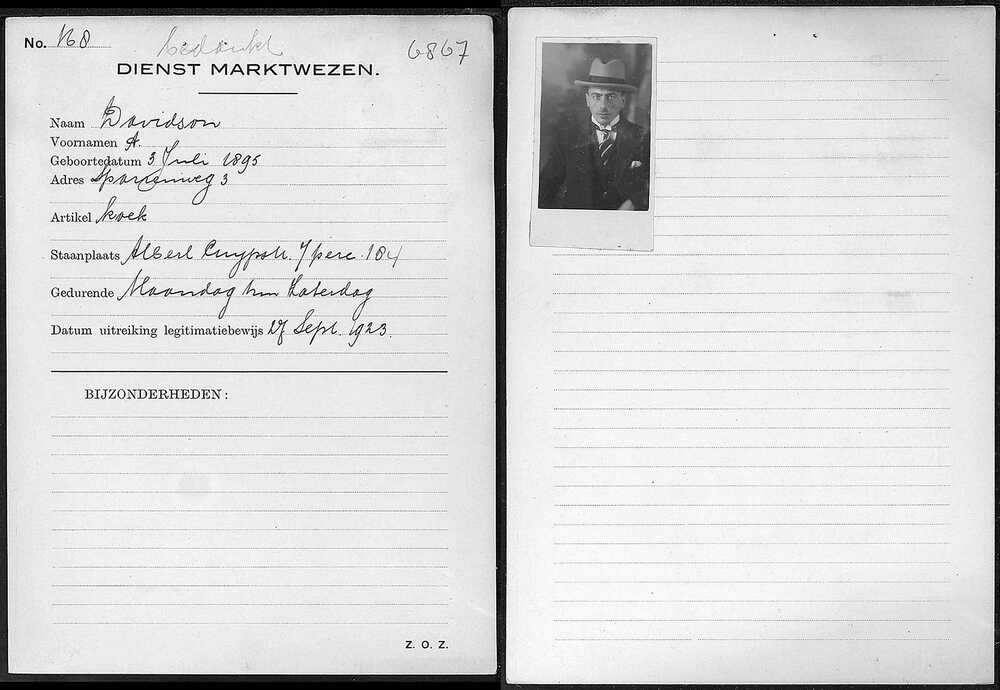 No. 168
bedankt
6867
DIENST MARKTWEZEN.
Naam Davidson
Voornamen A.
Geboortedatum 3 Juli 1895
Adres Sparrenweg 3
Artikel koek
Staanplaats Albert Cuypstr. 7 perc. 184
Gedurende Maandag t/m Zaterdag
Datum uitreiking legitimatiebewijs 27 Sept. 1923.
BIJZONDERHEDEN:
Z. O. Z.